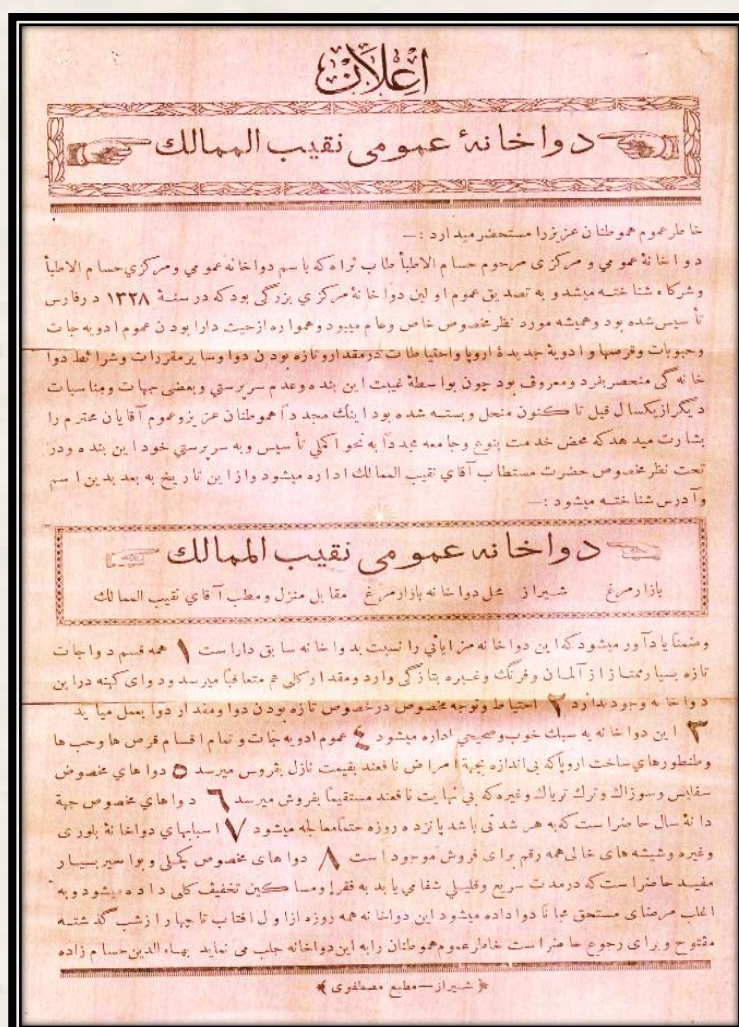 اعلان
دواخانهٔ عمومی نقیب الممالك
خاطر عموم هموطنان عزیز را مستحضر میدارد :—
دواخانهٔ عمومي و مرکزی مرحوم حسام الاطبأ طاب ثراه که باسم دواخانه عمومي و مرکزي حسام الاطبأ
وشرکاء شناخته میشد و به تصدیق عموم اولین دواخانهٔ مرکزي بزرگی بود که در سنهٔ ۱۳۲۸ در فارس
تأسیس شده بود و همیشه مورد نظر مخصوص خاص و عام میبود و همواره از حیث دارا بودن عموم ادویه جات
وحبوبات وقرصها و ادویهٔ جدیدهٔ اروپا واحتیاطات در مقدار و تازه بودن دوا وسایر مقررات وشرائط دوا
خانه گی منحصر بفرد و معروف بود چون بواسطهٔ غیبت این بنده وعدم سرپرستي وبعضی جهات ومناسبات
دیگر از یکسال قبل تا کنون منحل و بسته شده بود اینك مجدداً هموطنان عزیز وعموم آقایان محترم را
بشارت میدهد که محض خدمت بنوع وجامعه مجدداً به نحو اکملي تأسیس وبه سرپرستي خود این بنده و در
تحت نظر مخصوص حضرت مستطاب آقاي نقیب الممالك اداره میشود واز این تاریخ به بعد بدین اسم
وآدرس شناخته میشود :—
دواخانه عمومی نقیب الممالك
بازار مرغ شیراز محل دواخانه بازار مرغ مقابل منزل و مطب آقاي نقیب الممالك
وضمناً یادآور میشود که این دواخانه مزایائي را نسبت بدواخانه سابق داراست ۱ همه قسم دواجات
تازه بسیار ممتاز از آلمان وفرنگ وغیره بتازگی وارد ومقدار کلی هم متعاقباً میرسد ودوای کهنه در این
دواخانه وجود ندارد ۲ احتیاط وتوجه مخصوص در خصوص تازه بودن دوا و مقدار دوا بعمل میاید
۳ این دواخانه به سبك خوب وصحیحي اداره میشود ٤ عموم ادویه جات و تمام اقسام قرص ها وحب ها
وطنطورهاي ساخت اروپا که بی اندازه بجهة امراض نافعند بقیمت نازل بفروش میرسد ٥ دوا هاي مخصوص
سفلیس وسوزاك وترك تریاك وغیره که بی نهایت نافعند مستقیماً بفروش میرسد ٦ دواهاي مخصوص جهة
دانهٔ سال حاضر است که به هر شدتی باشد پانزده روزه حتماً معالجه میشود ۷ اسبابهاي دواخانهٔ بلوری
وغیره وشیشه های خالی همه رقم برای فروش موجود است ۸ دوا های مخصوص کچلی وبواسیر بسیار
مفید حاضر است که در مدت سریع وقلیلی شفا می یابد به فقرا و مساکین تخفیف کلی داده میشود وبه
اغلب مرضای مستحق مجاناً دوا داده میشود این دواخانه همه روزه از اول افتاب تا چهار از شب گذشته
مفتوح و برای رجوع حاضر است خاطر عموم هموطنان را به این دواخانه جلب می نماید بهاءالدین حسام زاده
شیراز — مطبع مصطفوی